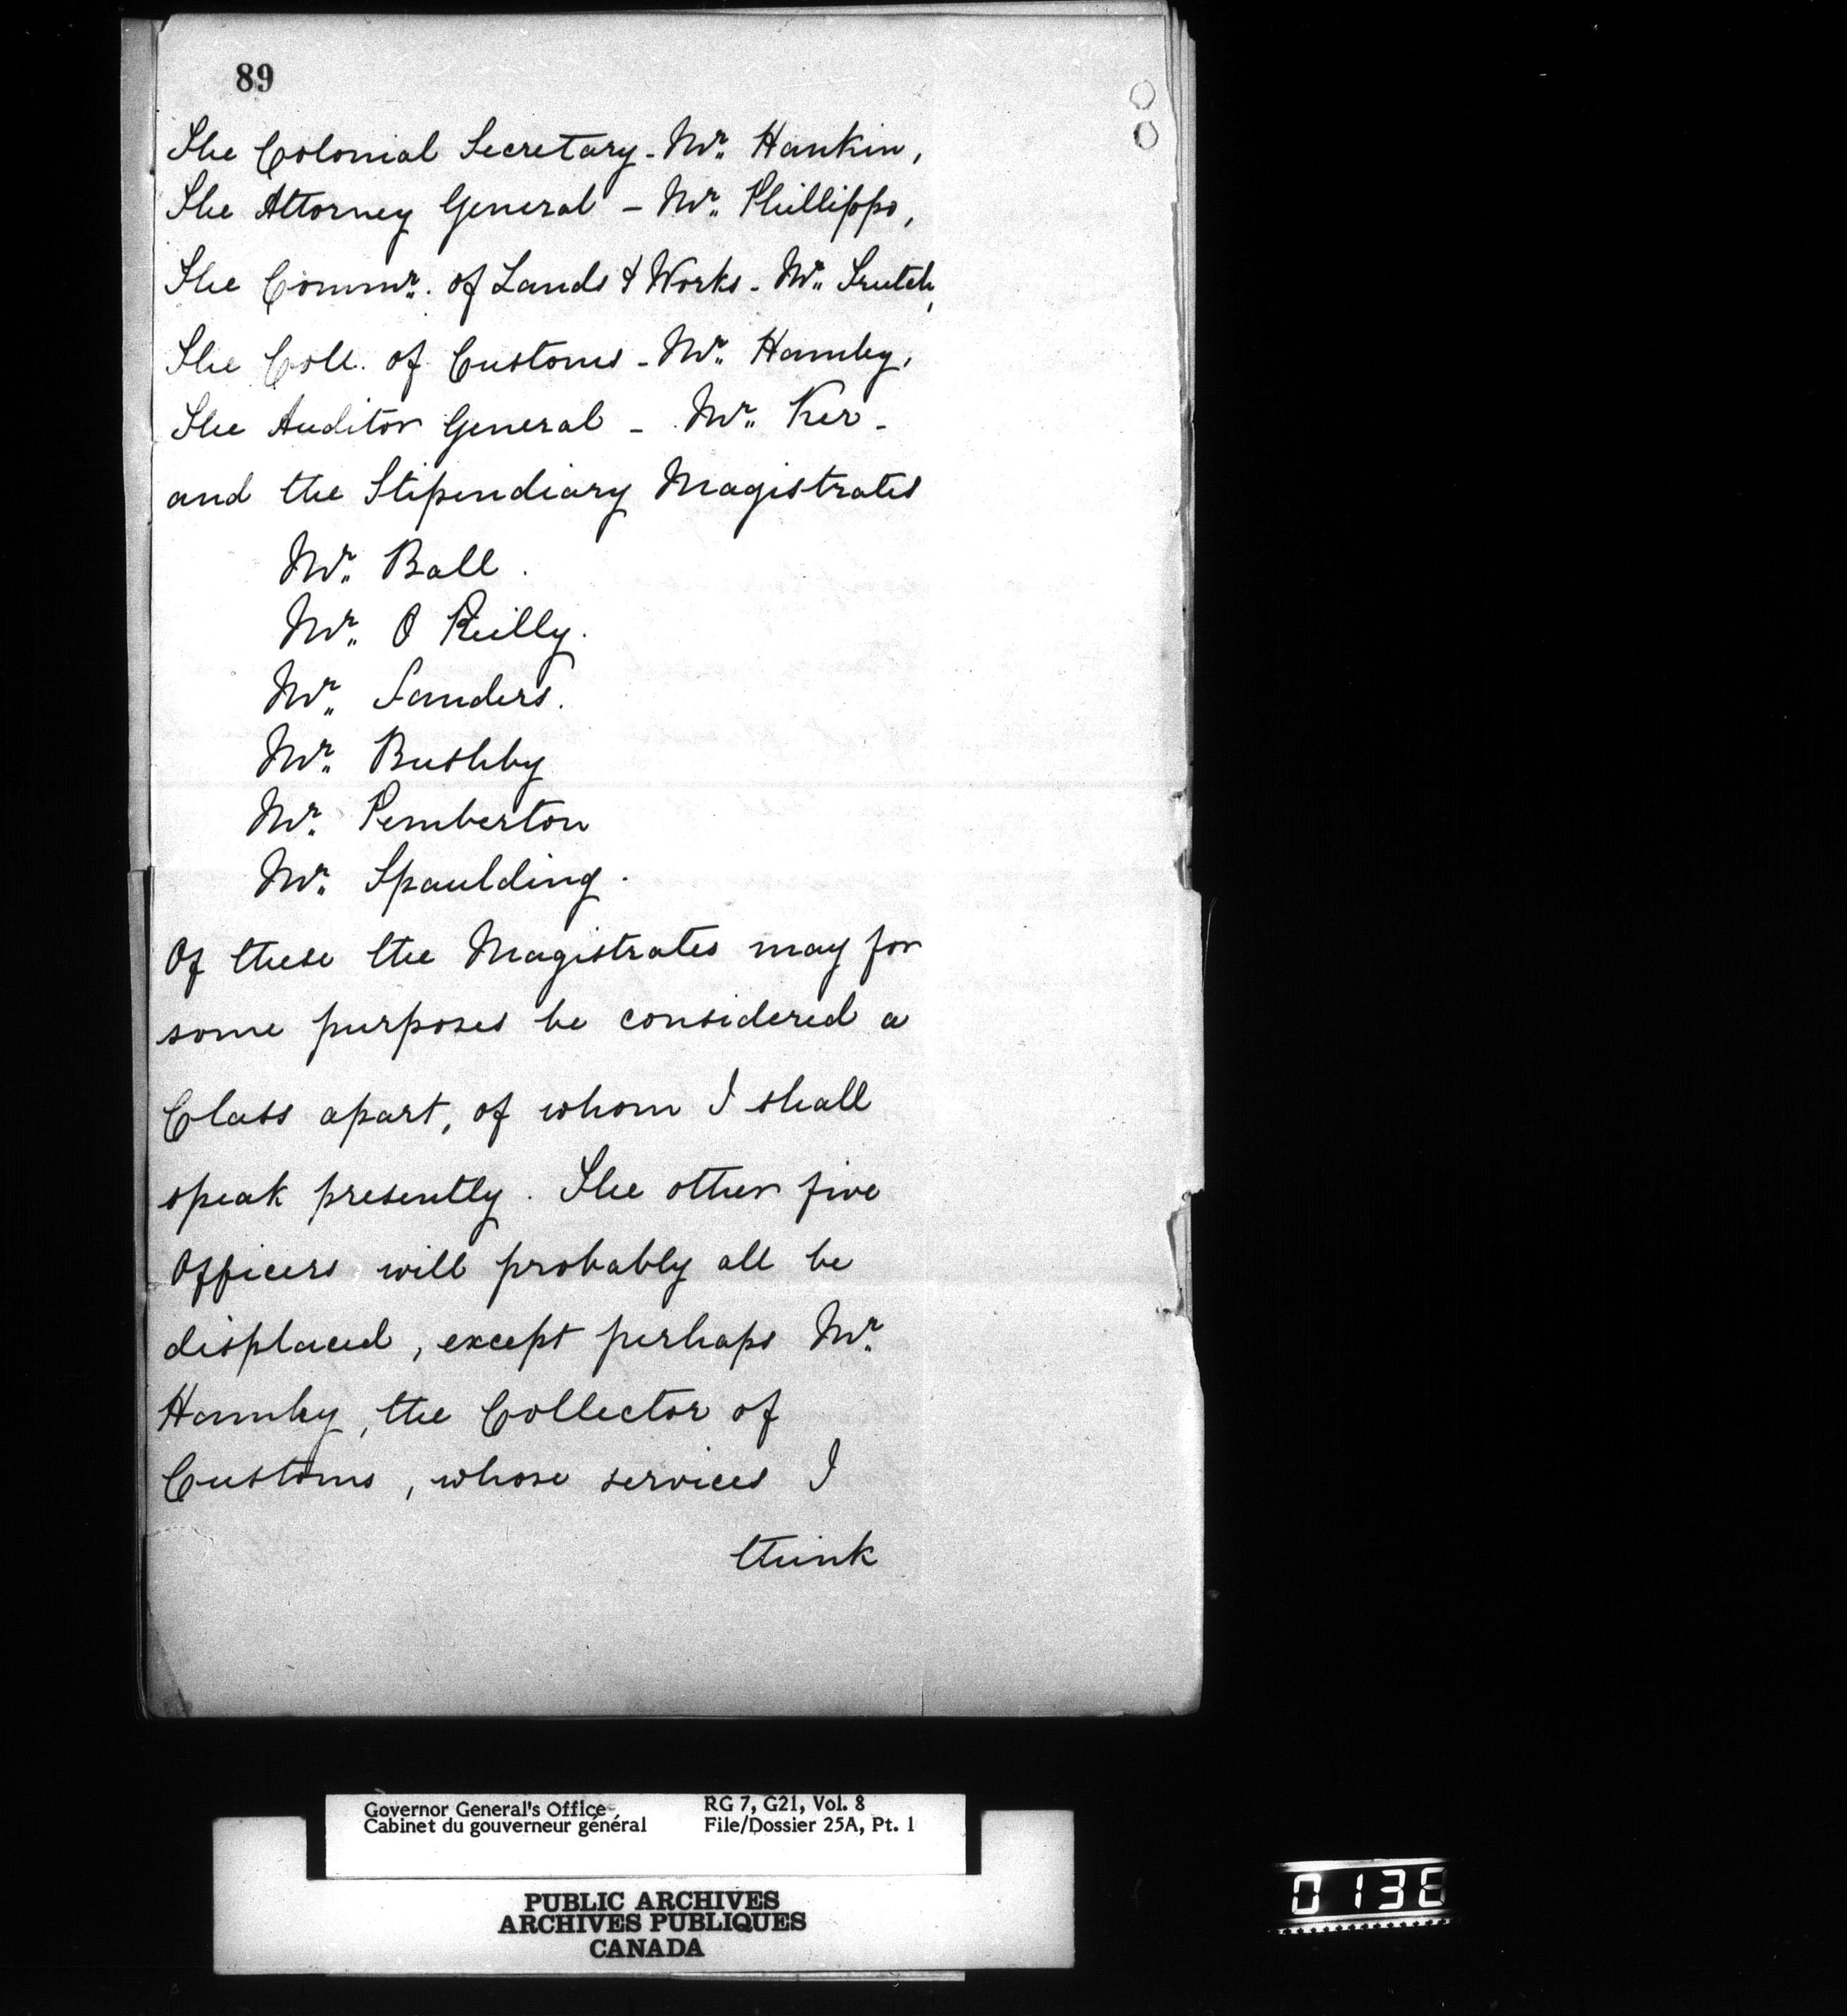 89
The Colonial Secretary - Mr. Hankin,
The Attorney General - Mr. Phillippo,
The Commr. of Lands & Works - Mr. Trutch,
The Coll. of Customs - Mr. Hamley,
The Auditor General - Mr. Ker -
and the Stipendiary Magistrates
Mr. Ball.
Mr. O Reilly.
Mr. Sanders.
Mr. Bushby
Mr. Pemberton
Mr. Spaulding.
Of these the Magistrates may for
some purposes be considered a
Class apart, of whom I shall
speak presently. The other five
Officers will probably all be
displaced, except perhaps Mr.
Hamley, the Collector of
Customs, whose services I
think
Governor General's Office
Cabinet du gouverneur général
RG 7, G21, Vol. 8
File/Dossier 25A, Pt. 1
PUBLIC ARCHIVES
ARCHIVES PUBLIQUES
CANADA